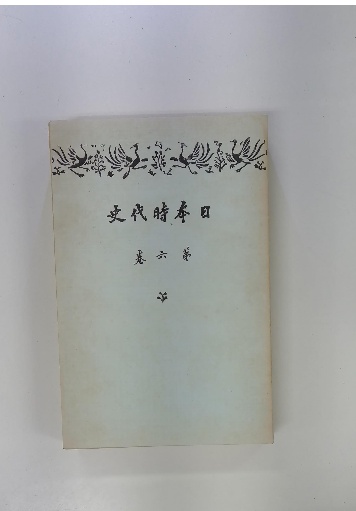 日本時代史
第六巻